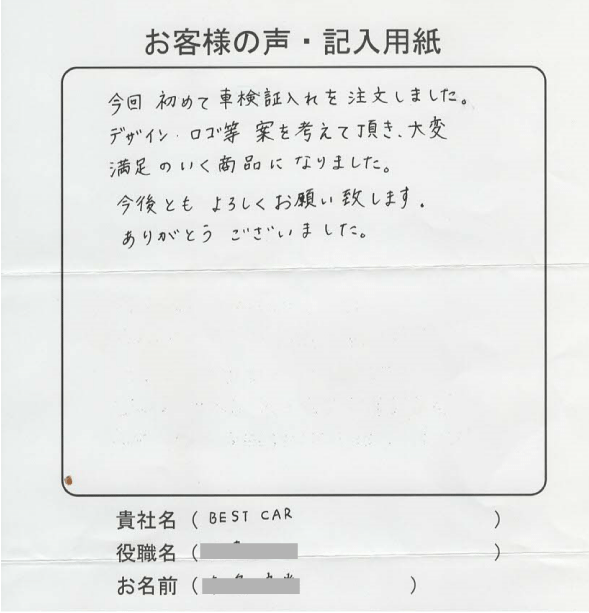 お客様の声・記入用紙
今回 初めて車検証入れを注文しました。
デザイン・ロゴ等 案を考えて頂き、大変
満足のいく商品になりました。
今後とも よろしくお願い致します。
ありがとう ございました。
貴社名（ BEST CAR ）
役職名（ ）
お名前（ ）